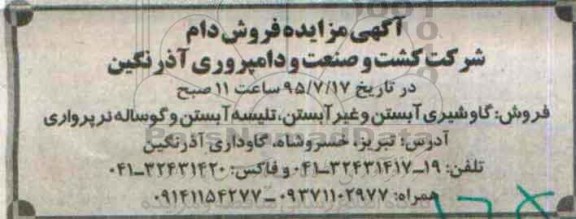 آگهی مزایده فروش دام
شرکت کشت و صنعت و دامپروری آذر نگین
در تاریخ ۹۵/۷/۱۷ ساعت ۱۱ صبح
فروش: گاو شیری آبستن و غیر آبستن، تلیسه آبستن و گوساله نر پرواری
آدرس: تبریز، خسروشاه، گاوداری آذرنگین
تلفن: ۱۹_۳۲۴۳۱۴۱۷_۰۴۱ و فاکس: ۳۲۴۳۱۴۲۰-۰۴۱
همراه: ۰۹۳۷۱۱۰۲۹۷۷ _ ۰۹۱۴۱۱۵۴۲۷۷